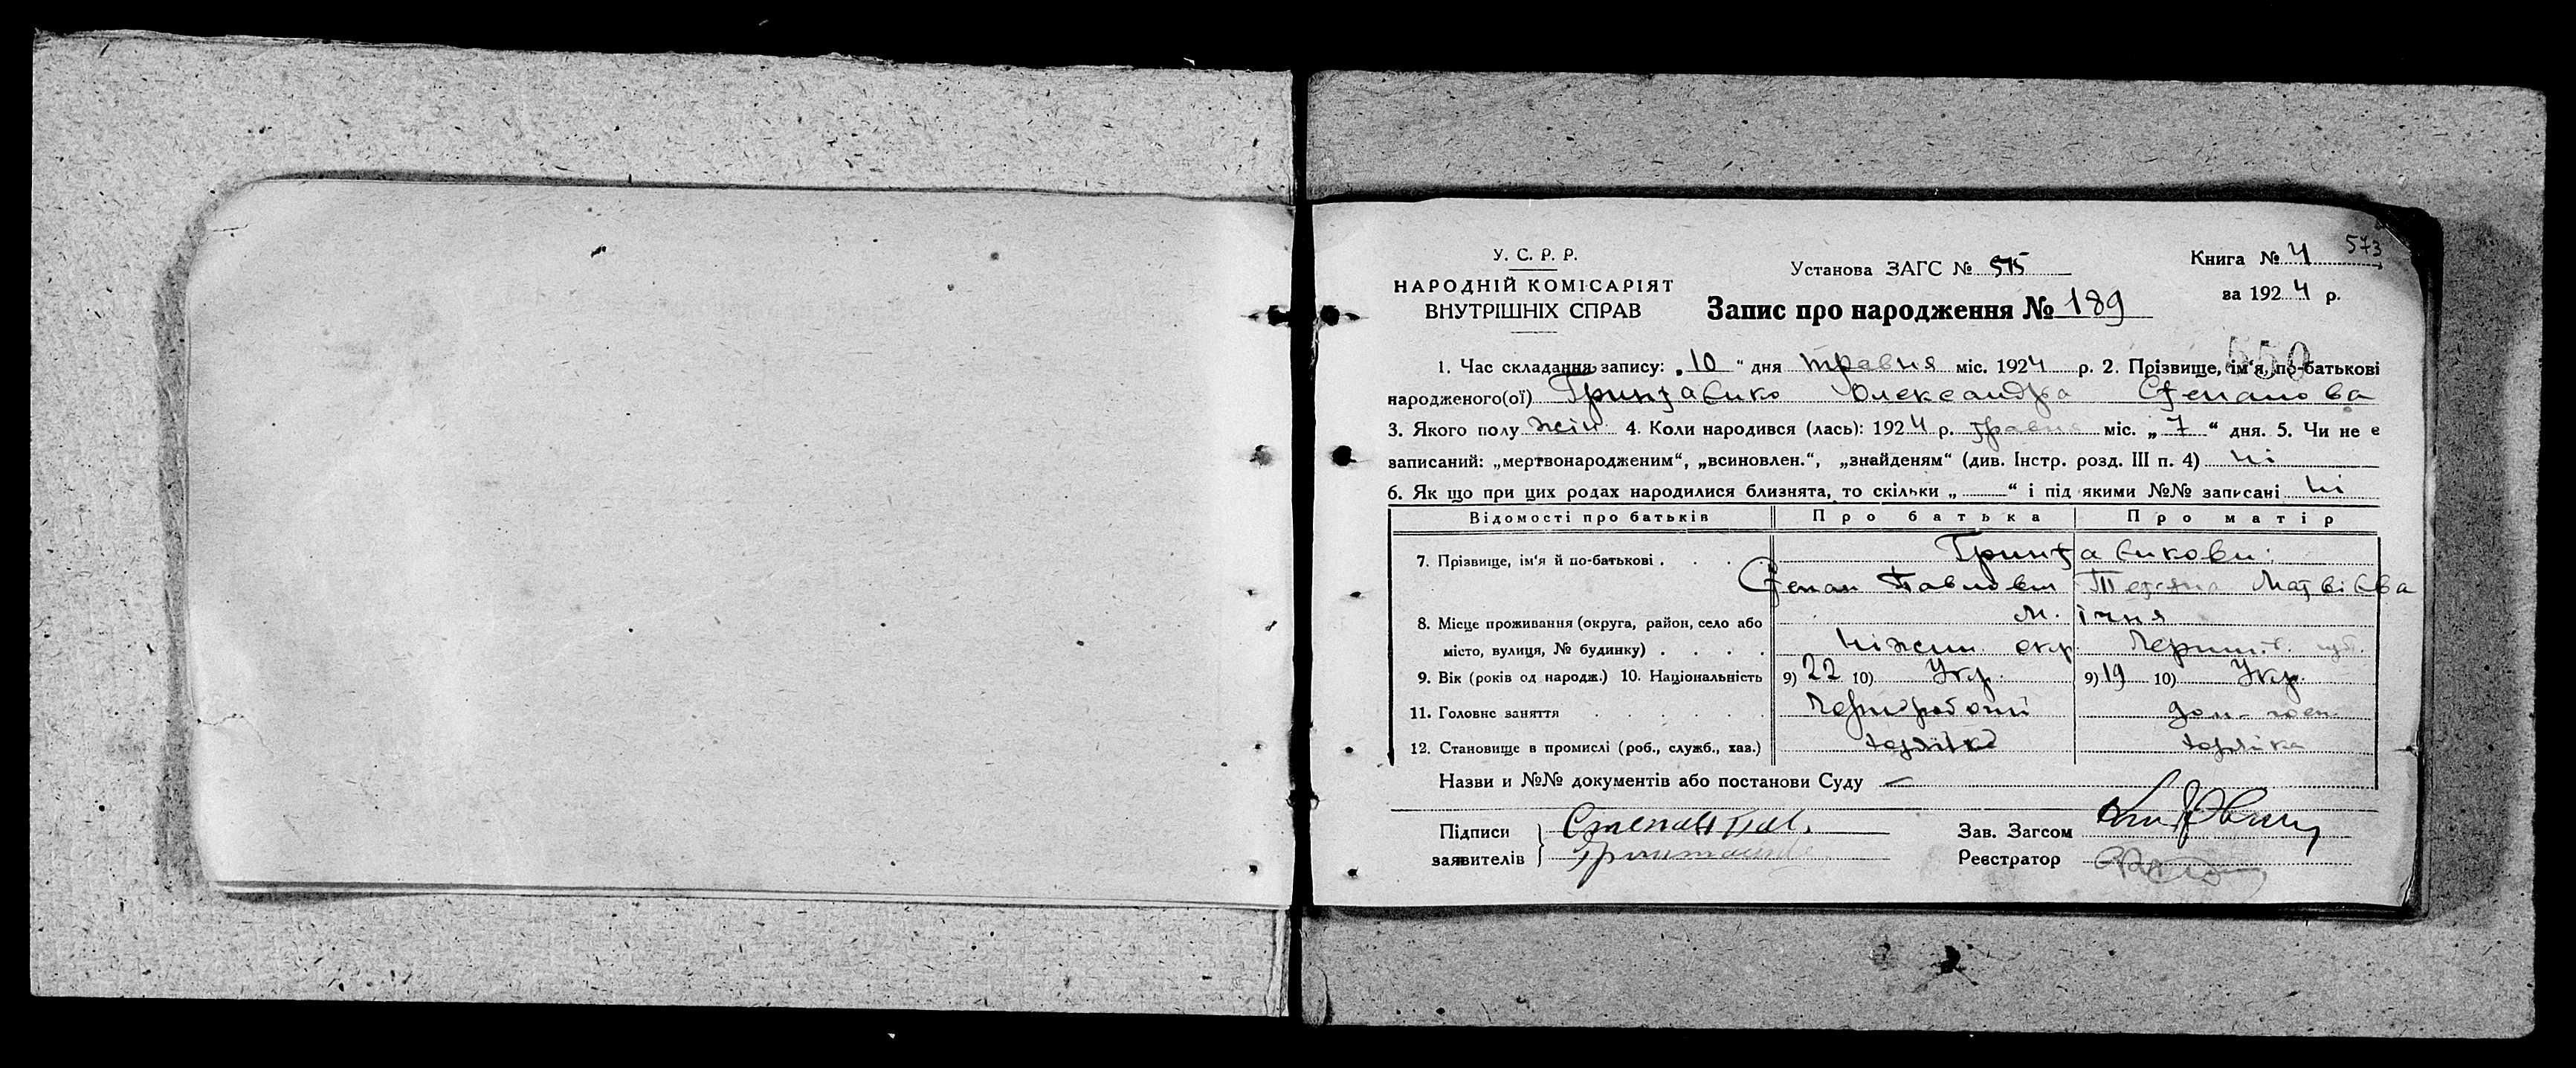 573
У. С. Р. Р.
НАРОДНІЙ КОМІСАРІЯТ
ВНУТРІШНІХ СПРАВ
Установа ЗАГС № 515
Книга № 4
за 1924 р.
Запис про народження № 189
550
1. Час складання запису: „10“ дня травня міс. 1924 р. 2. Прізвище, ім'я, по-батькові
народженого(ої) Олександра Степанова
3. Якого полу жін 4. Коли народився (лась): 1924 р. травня міс. „7“ дня. 5. Чи не є
записаний: „мертвонародженим“, „всиновлен.“, „знайденям“ (див. Інстр. розд. III п. 4) ні
6. Як що при цих родах народилися близнята, то скільки „ “ і під якими №№ записані ні
Відомості про батьків Про батька Про матір
7. Прізвище, ім'я й по-батькові . . . .
Степан Павлович Тетяна Матвієва
8. Місце проживання (округа, район, село або м. Ічня
місто, вулиця, № будинку) . . . . Ніжин. окр. Черниг. губ.
9. Вік (років од народж.) 10. Національність 9) 22 10) Укр. 9) 19 10) Укр.
11. Головне заняття . . . . . . Чорноробочий дом-
12. Становище в промислі (роб., служб., хаз.)
Назви и №№ документів або постанови Суду —
Підписи заявителів Степан Пав.
Зав. Загсом
Реєстратор